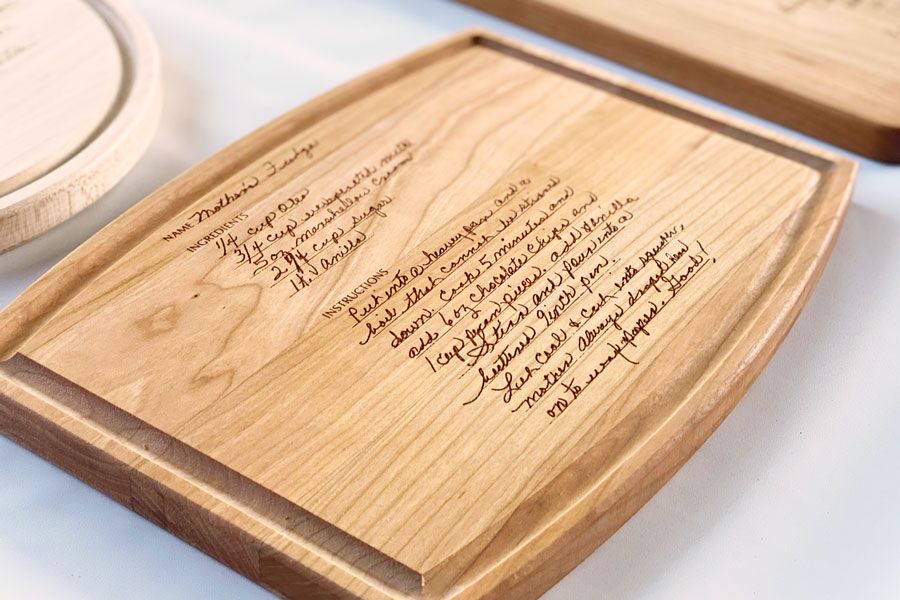 NAME Mothers Fudge
INGREDIENTS
1/4 cup Oleo
3/4 cup evaporated milk
5 oz marshmallow cream
2 1/4 cup sugar
1 t. Vanilla
INSTRUCTIONS
Put into a heavy pan and a
boil that cannot be stirred
down. Cook 5 minutes and
add 6 oz chocolate chips and
1 cup pecan pieces. add Vanilla
Stir and pour into a
buttered 9 inch pan.
Let Cool & Cut into squares,
mother always dropped
on to wax paper. Good!